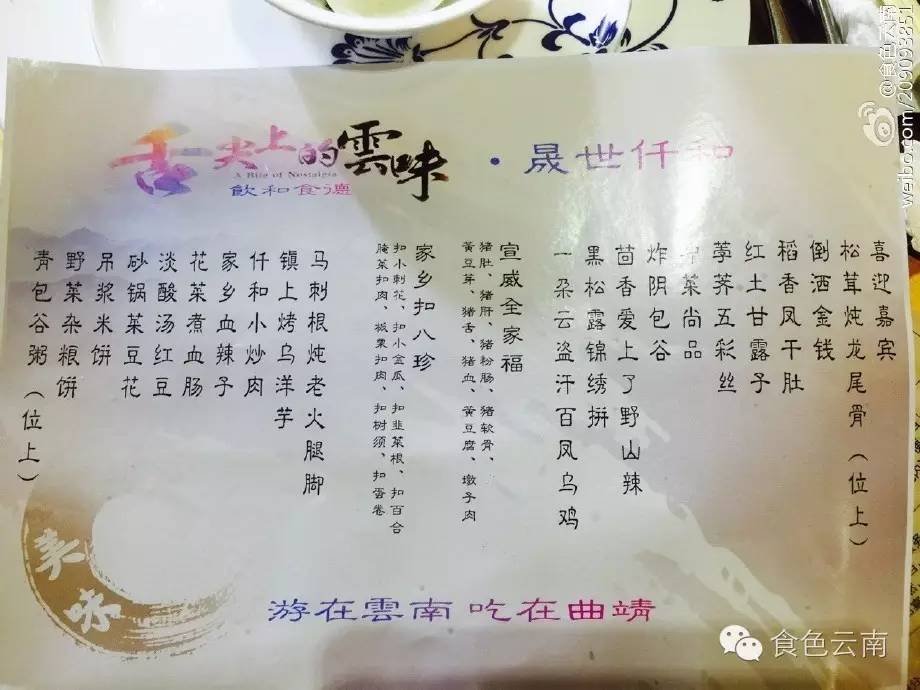 舌尖上的雲味·晟世仟和
A Bite of Nostalgia
飲和食德
喜迎嘉宾
松茸炖龙尾骨（位上）
倒洒金钱
稻香凤干肚
红土甘露子
荸荠五彩丝
菜尚品
炸阴包谷
茴香爱上了野山辣
黑松露锦绣拼
一朵云盗汗百凤乌鸡
宣威全家福
猪肚、猪肝、猪粉肠、猪软骨、
黄豆芽、猪舌、猪血、黄豆腐、墩子肉
家乡扣八珍
扣小刺花、扣小金瓜、扣韭菜根、扣百合
腌菜扣肉、板栗扣肉、扣树须、扣蛋卷
马刺根炖老火腿脚
镇上烤乌洋芋
仟和小炒肉
家乡血辣子
花菜煮血肠
淡酸汤红豆
砂锅菜豆花
吊浆米饼
野菜杂粮饼
青包谷粥（位上）
美味
游在雲南 吃在曲靖
食色云南
@食色云南
weibo.com/2090938851